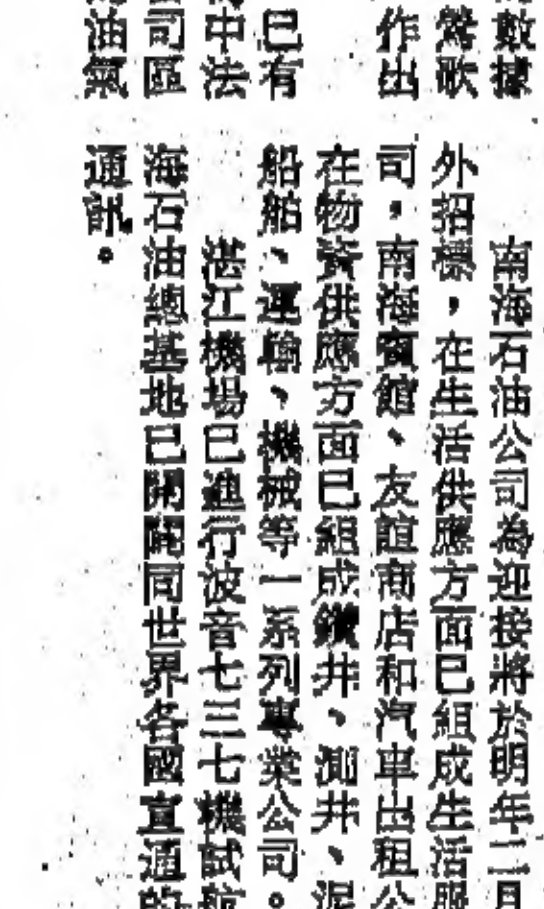 數據
鶯歌
作出
已有
中法
司區
油氣
南海石油公司為迎接將於明年二月
外招標，在生活供應方面已組成生活服
司，南海賓館、友誼商店和汽車出租公
在物資供應方面已組成鑽井、測井、泥
船舶、運輸、機械等一系列專業公司。
湛江機場已進行波音七三七機試航
海石油總基地已開闢同世界各國直通的
通訊。